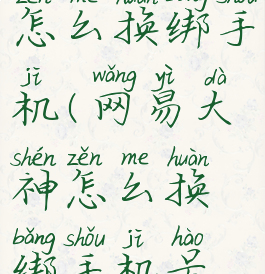 zěn me huàn bǎng shǒu
怎么换绑手
jī wǎng yì dà
机(网易大
shén zěn me huàn
神怎么换
bǎng shǒu jī hào
绑手机号